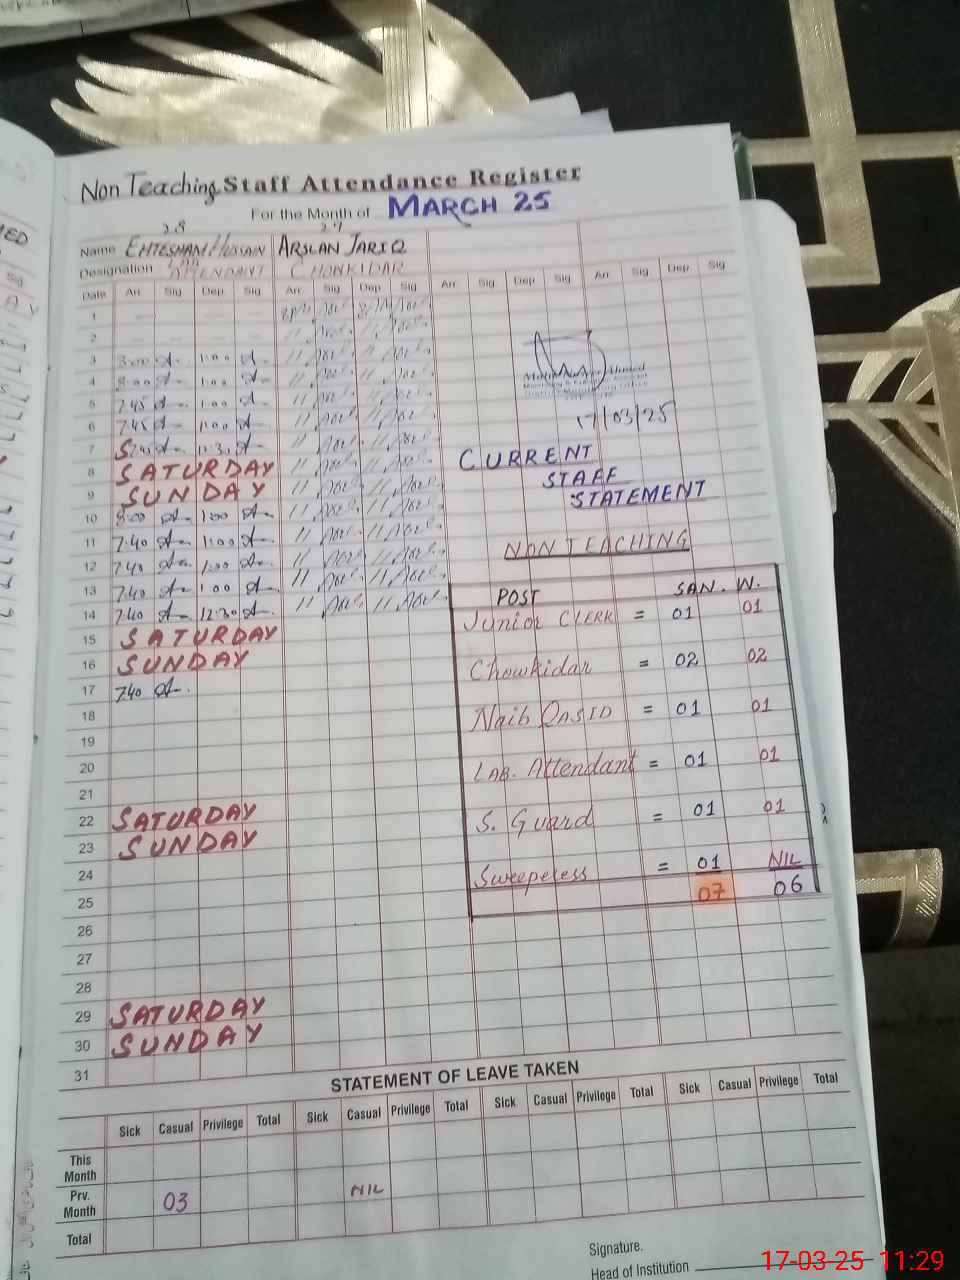 Non Teaching Staff Attendance Register
For the Month of MARCH 25
28 27
Name EHTESHAM HUSSAIN ARSLAN TARIQ
Designation LAB ATTENDANT CHOWKIDAR
Date Arr. Sig. Dep. Sig. Arr. Sig. Dep. Sig. Arr. Sig. Dep. Sig. Arr. Sig. Dep. Sig.
1
2
3 8:00 1:00
4 8:00 1:00
5 7.45 1:00
6 7.45 1:00
7 7.45 12:30
8 SATURDAY
9 SUNDAY
10 8:00 1:00
11 7:40 1:00
12 7:40 1:00
13 7:40 1:00
14 7:40 12:30
15 SATURDAY
16 SUNDAY
17 7:40
18
19
20
21
22 SATURDAY
23 SUNDAY
24
25
26
27
28
29 SATURDAY
30 SUNDAY
31
17/03/25
CURRENT
STAFF
STATEMENT
NON TEACHING
POST SAN. W.
Junior CLERK = 01 01
Chowkidar = 02 02
Naib QASID = 01 01
LAB. Attendant = 01 01
S. Guard = 01 01
Sweepeless = 01 NIL
07 06
STATEMENT OF LEAVE TAKEN
Sick Casual Privilege Total Sick Casual Privilege Total Sick Casual Privilege Total Sick Casual Privilege Total
This Month
Prv. Month 03 NIL
Total
Signature.
Head of Institution
17-03-25 11:29